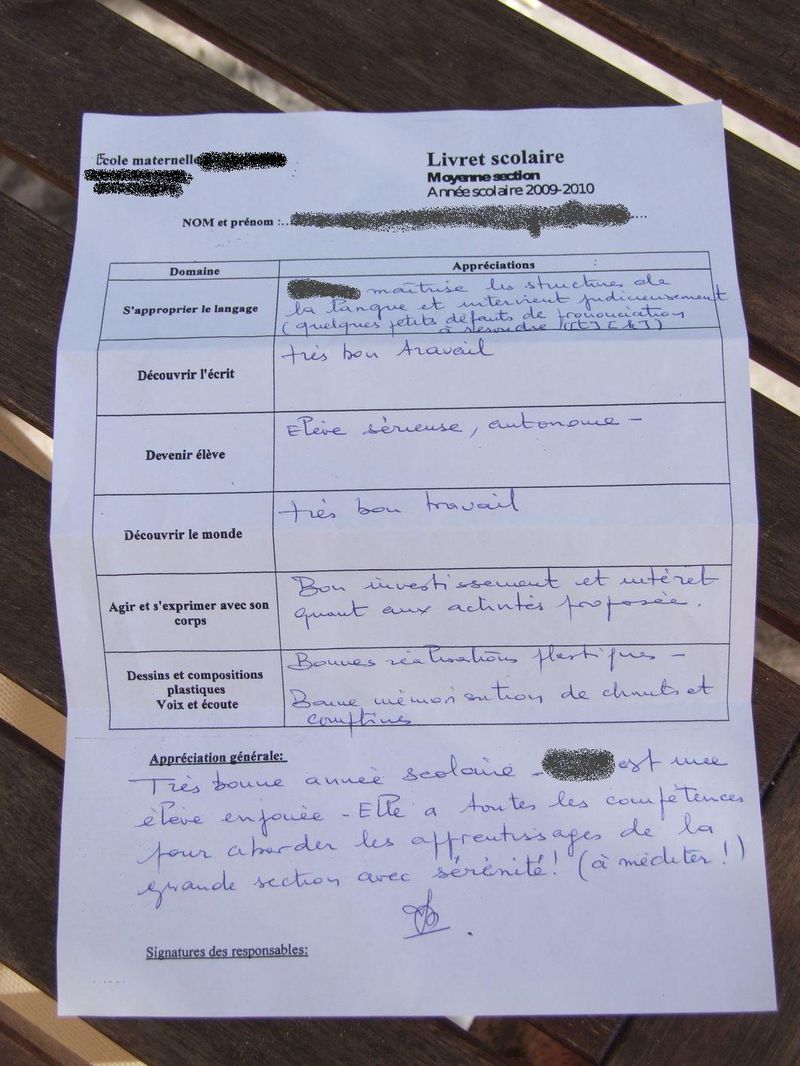 École maternelle
Livret scolaire
Moyenne section
Année scolaire 2009-2010
NOM et prénom :
Domaine
Appréciations
S'approprier le langage
maîtrise les structures de
la langue et intervient judicieusement
(quelques petits défauts de prononciation
à résoudre
Découvrir l'écrit
très bon travail
Devenir élève
Elève sérieuse, autonome -
Découvrir le monde
très bon travail
Agir et s'exprimer avec son
corps
Bon investissement et intéret
quant aux activités proposée.
Dessins et compositions
plastiques
Voix et écoute
Bonnes réalisations plastiques -
Bonne mémorisation de chants et
comptines
Appréciation générale:
Très bonne année scolaire - est une
élève enjouée - Elle a toutes les compétences
pour aborder les apprentissages de la
grande section avec sérénité! (à méditer!)
Signatures des responsables: